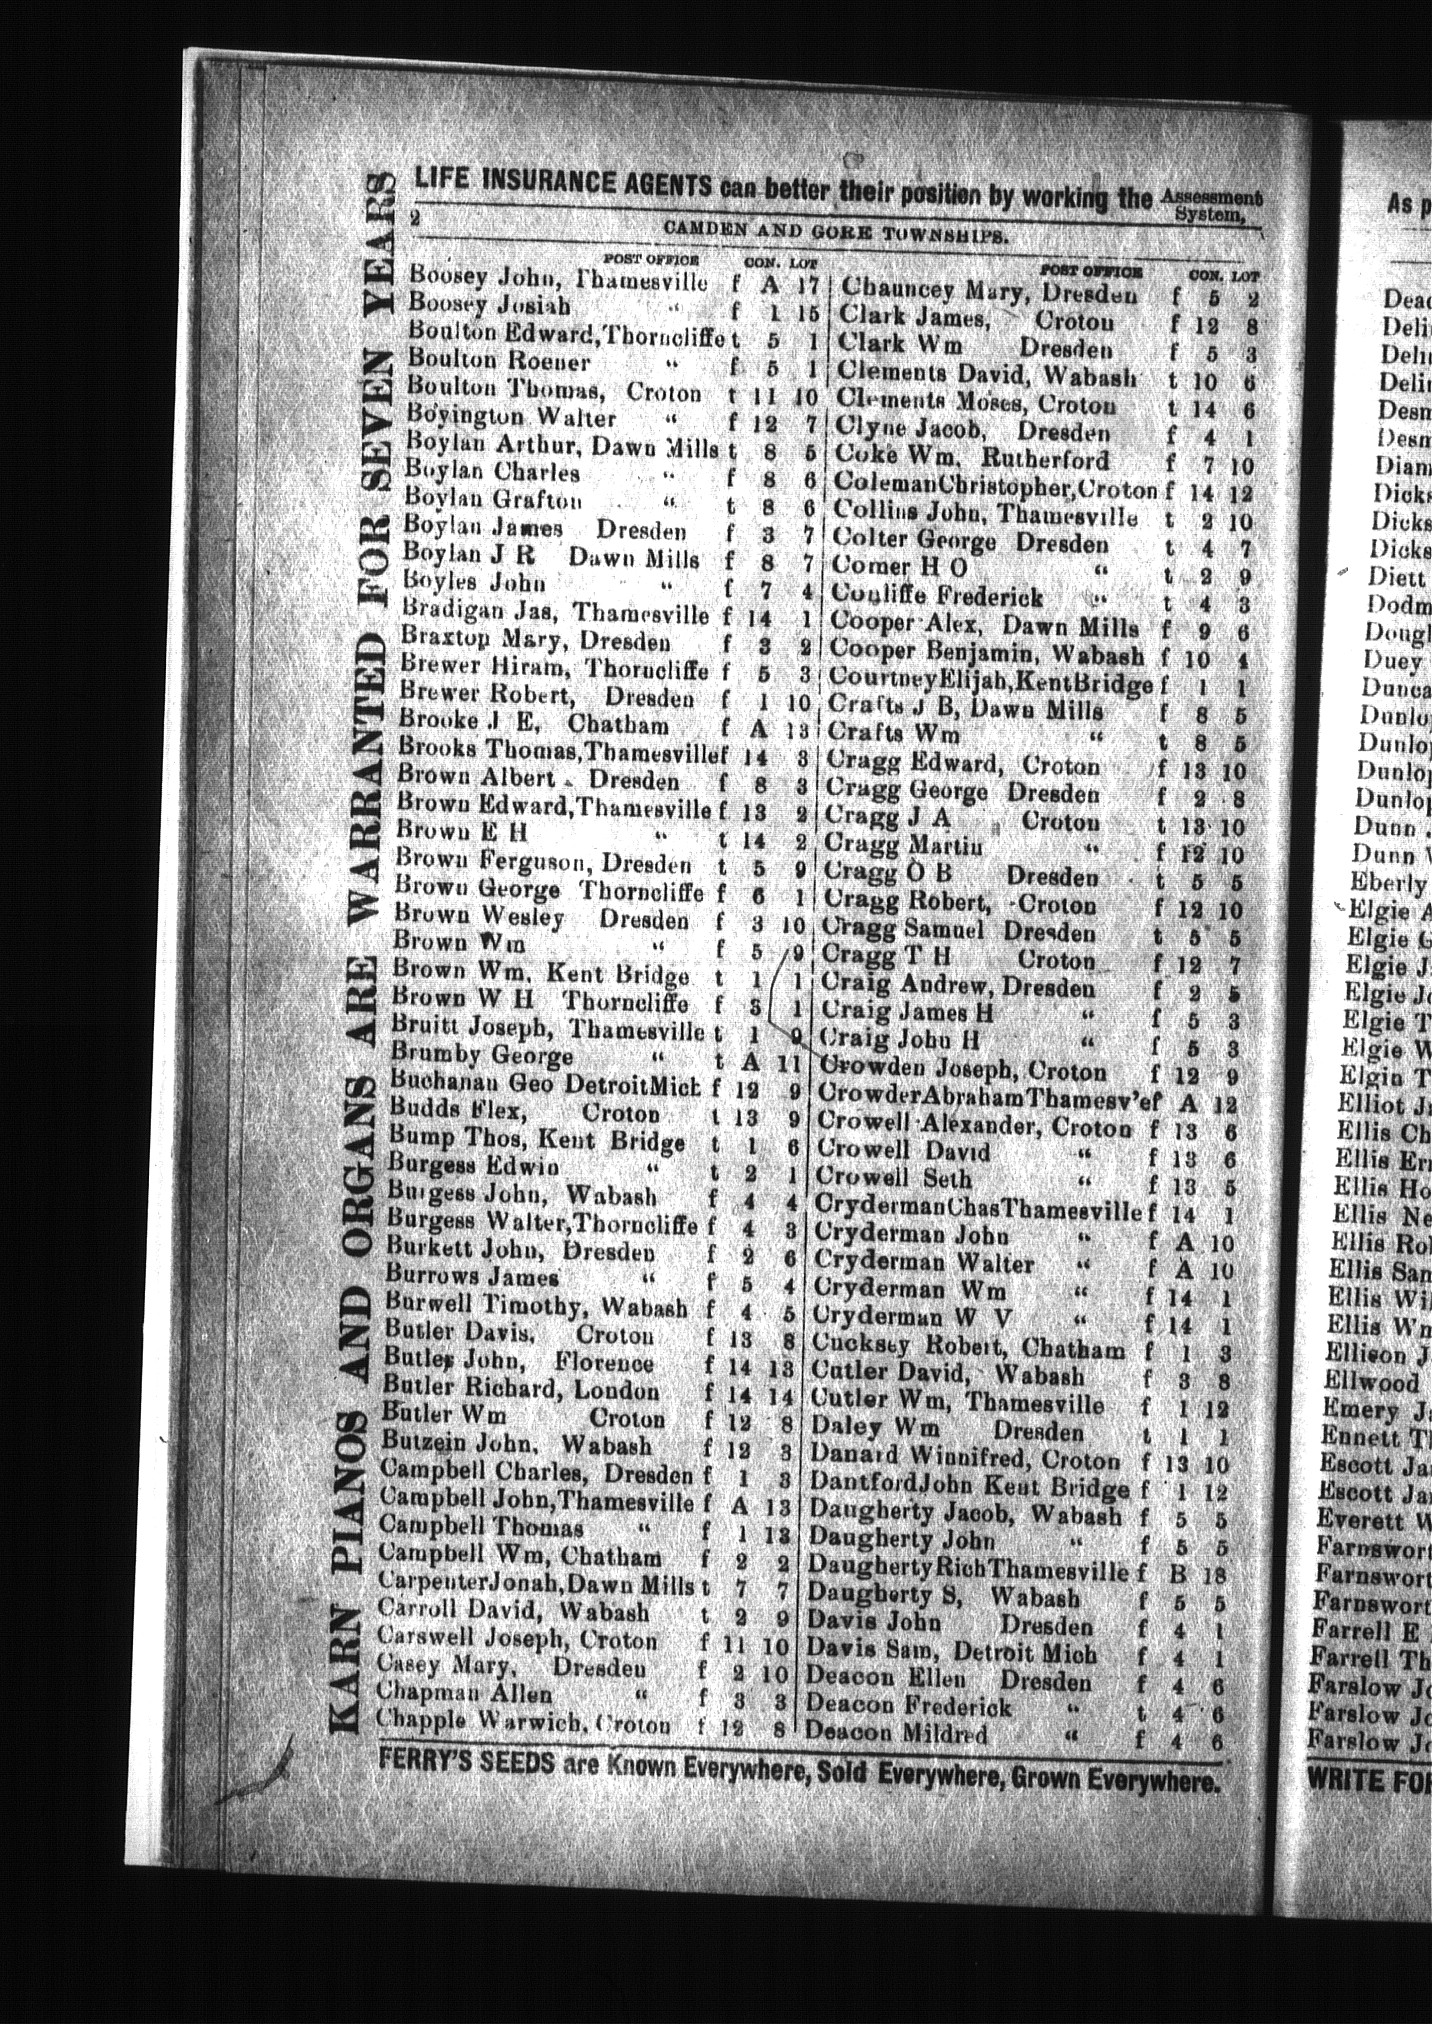 LIFE INSURANCE AGENTS can better their position by working the Assessment System,
2
CAMDEN AND GORE TOWNSHIPS.
POST OFFICE CON. LOT
Boosey John, Thamesville f A 17
Boosey Josiah “ f 1 15
Boulton Edward, Thorncliffe t 5 1
Boulton Roener “ f 5 1
Boulton Thomas, Croton t 11 10
Boyington Walter “ f 12 7
Boylan Arthur, Dawn Mills t 8 5
Boylan Charles “ f 8 6
Boylan Grafton “ t 8 6
Boylan James Dresden f 3 7
Boylan J R Dawn Mills f 8 7
Boyles John “ f 7 4
Bradigan Jas, Thamesville f 14 1
Braxton Mary, Dresden f 3 2
Brewer Hiram, Thorncliffe f 5 3
Brewer Robert, Dresden f 1 10
Brooke J E, Chatham f A 13
Brooks Thomas, Thamesville f 14 3
Brown Albert Dresden f 8 3
Brown Edward, Thamesville f 13 2
Brown E H “ t 14 2
Brown Ferguson, Dresden t 5 9
Brown George Thorncliffe f 6 1
Brown Wesley Dresden f 3 10
Brown Wm “ f 5 9
Brown Wm, Kent Bridge t 1 1
Brown W H Thorncliffe f 3 1
Bruitt Joseph, Thamesville t 1 9
Brumby George “ t A 11
Buchanan Geo Detroit Mich f 12 9
Budds Flex, Croton t 13 9
Bump Thos, Kent Bridge t 1 6
Burgess Edwin “ t 2 1
Burgess John, Wabash f 4 4
Burgess Walter, Thorncliffe f 4 3
Burkett John, Dresden f 2 6
Burrows James “ f 5 4
Burwell Timothy, Wabash f 4 5
Butler Davis, Croton f 13 8
Butler John, Florence f 14 13
Butler Richard, London f 14 14
Butler Wm Croton f 12 8
Butzein John, Wabash f 12 3
Campbell Charles, Dresden f 1 3
Campbell John, Thamesville f A 13
Campbell Thomas “ f 1 13
Campbell Wm, Chatham f 2 2
Carpenter Jonah, Dawn Mills t 7 7
Carroll David, Wabash t 2 9
Carswell Joseph, Croton f 11 10
Casey Mary, Dresden f 2 10
Chapman Allen “ f 3 3
Chapple Warwich, Croton f 12 8
POST OFFICE CON. LOT
Chauncey Mary, Dresden f 5 2
Clark James, Croton f 12 8
Clark Wm Dresden f 5 3
Clements David, Wabash t 10 6
Clements Moses, Croton t 14 6
Clyne Jacob, Dresden f 4 1
Coke Wm, Rutherford f 7 10
Coleman Christopher, Croton f 14 12
Collins John, Thamesville t 2 10
Colter George Dresden t 4 7
Comer H O “ t 2 9
Conliffe Frederick “ t 4 3
Cooper Alex, Dawn Mills f 9 6
Cooper Benjamin, Wabash f 10 4
Courtney Elijah, Kent Bridge f 1 1
Crafts J B, Dawn Mills f 8 5
Crafts Wm “ t 8 5
Cragg Edward, Croton f 13 10
Cragg George Dresden f 2 8
Cragg J A Croton t 13 10
Cragg Martin “ f 12 10
Cragg O B Dresden t 5 5
Cragg Robert, Croton f 12 10
Cragg Samuel Dresden t 5 5
Cragg T H Croton f 12 7
Craig Andrew, Dresden f 2 5
Craig James H “ f 5 3
Craig John H “ f 5 3
Crowden Joseph, Croton f 12 9
Crowder Abraham Thamesv'e f A 12
Crowell Alexander, Croton f 13 6
Crowell David “ f 13 6
Crowell Seth “ f 13 5
Cryderman Chas Thamesville f 14 1
Cryderman John “ f A 10
Cryderman Walter “ f A 10
Cryderman Wm “ f 14 1
Cryderman W V “ f 14 1
Cucksey Robert, Chatham f 1 3
Cutler David, Wabash f 3 8
Cutler Wm, Thamesville f 1 12
Daley Wm Dresden t 1 1
Danard Winnifred, Croton f 13 10
Dantford John Kent Bridge f 1 12
Daugherty Jacob, Wabash f 5 5
Daugherty John “ f 5 5
Daugherty Rich Thamesville f B 18
Daugherty S, Wabash f 5 5
Davis John Dresden f 4 1
Davis Sam, Detroit Mich f 4 1
Deacon Ellen Dresden f 4 6
Deacon Frederick “ t 4 6
Deacon Mildred “ f 4 6
FERRY'S SEEDS are Known Everywhere, Sold Everywhere, Grown Everywhere.
KARN PIANOS AND ORGANS ARE WARRANTED FOR SEVEN YEARS
As
Diett
Duey
Dunn
Dunn
Eberly
Elgie
Elgie
Elgie
Elgie
Elgie
Elgie
Elgin
Elliot
Ellis
Ellis
Ellis
Ellis
Ellis
Ellis
Ellis
Ellis
Ellison
Ellwood
Emery
Ennett
Escott
Escott
Everett
Farrell E
Farrell
Farslow
Farslow
Farslow
WRITE